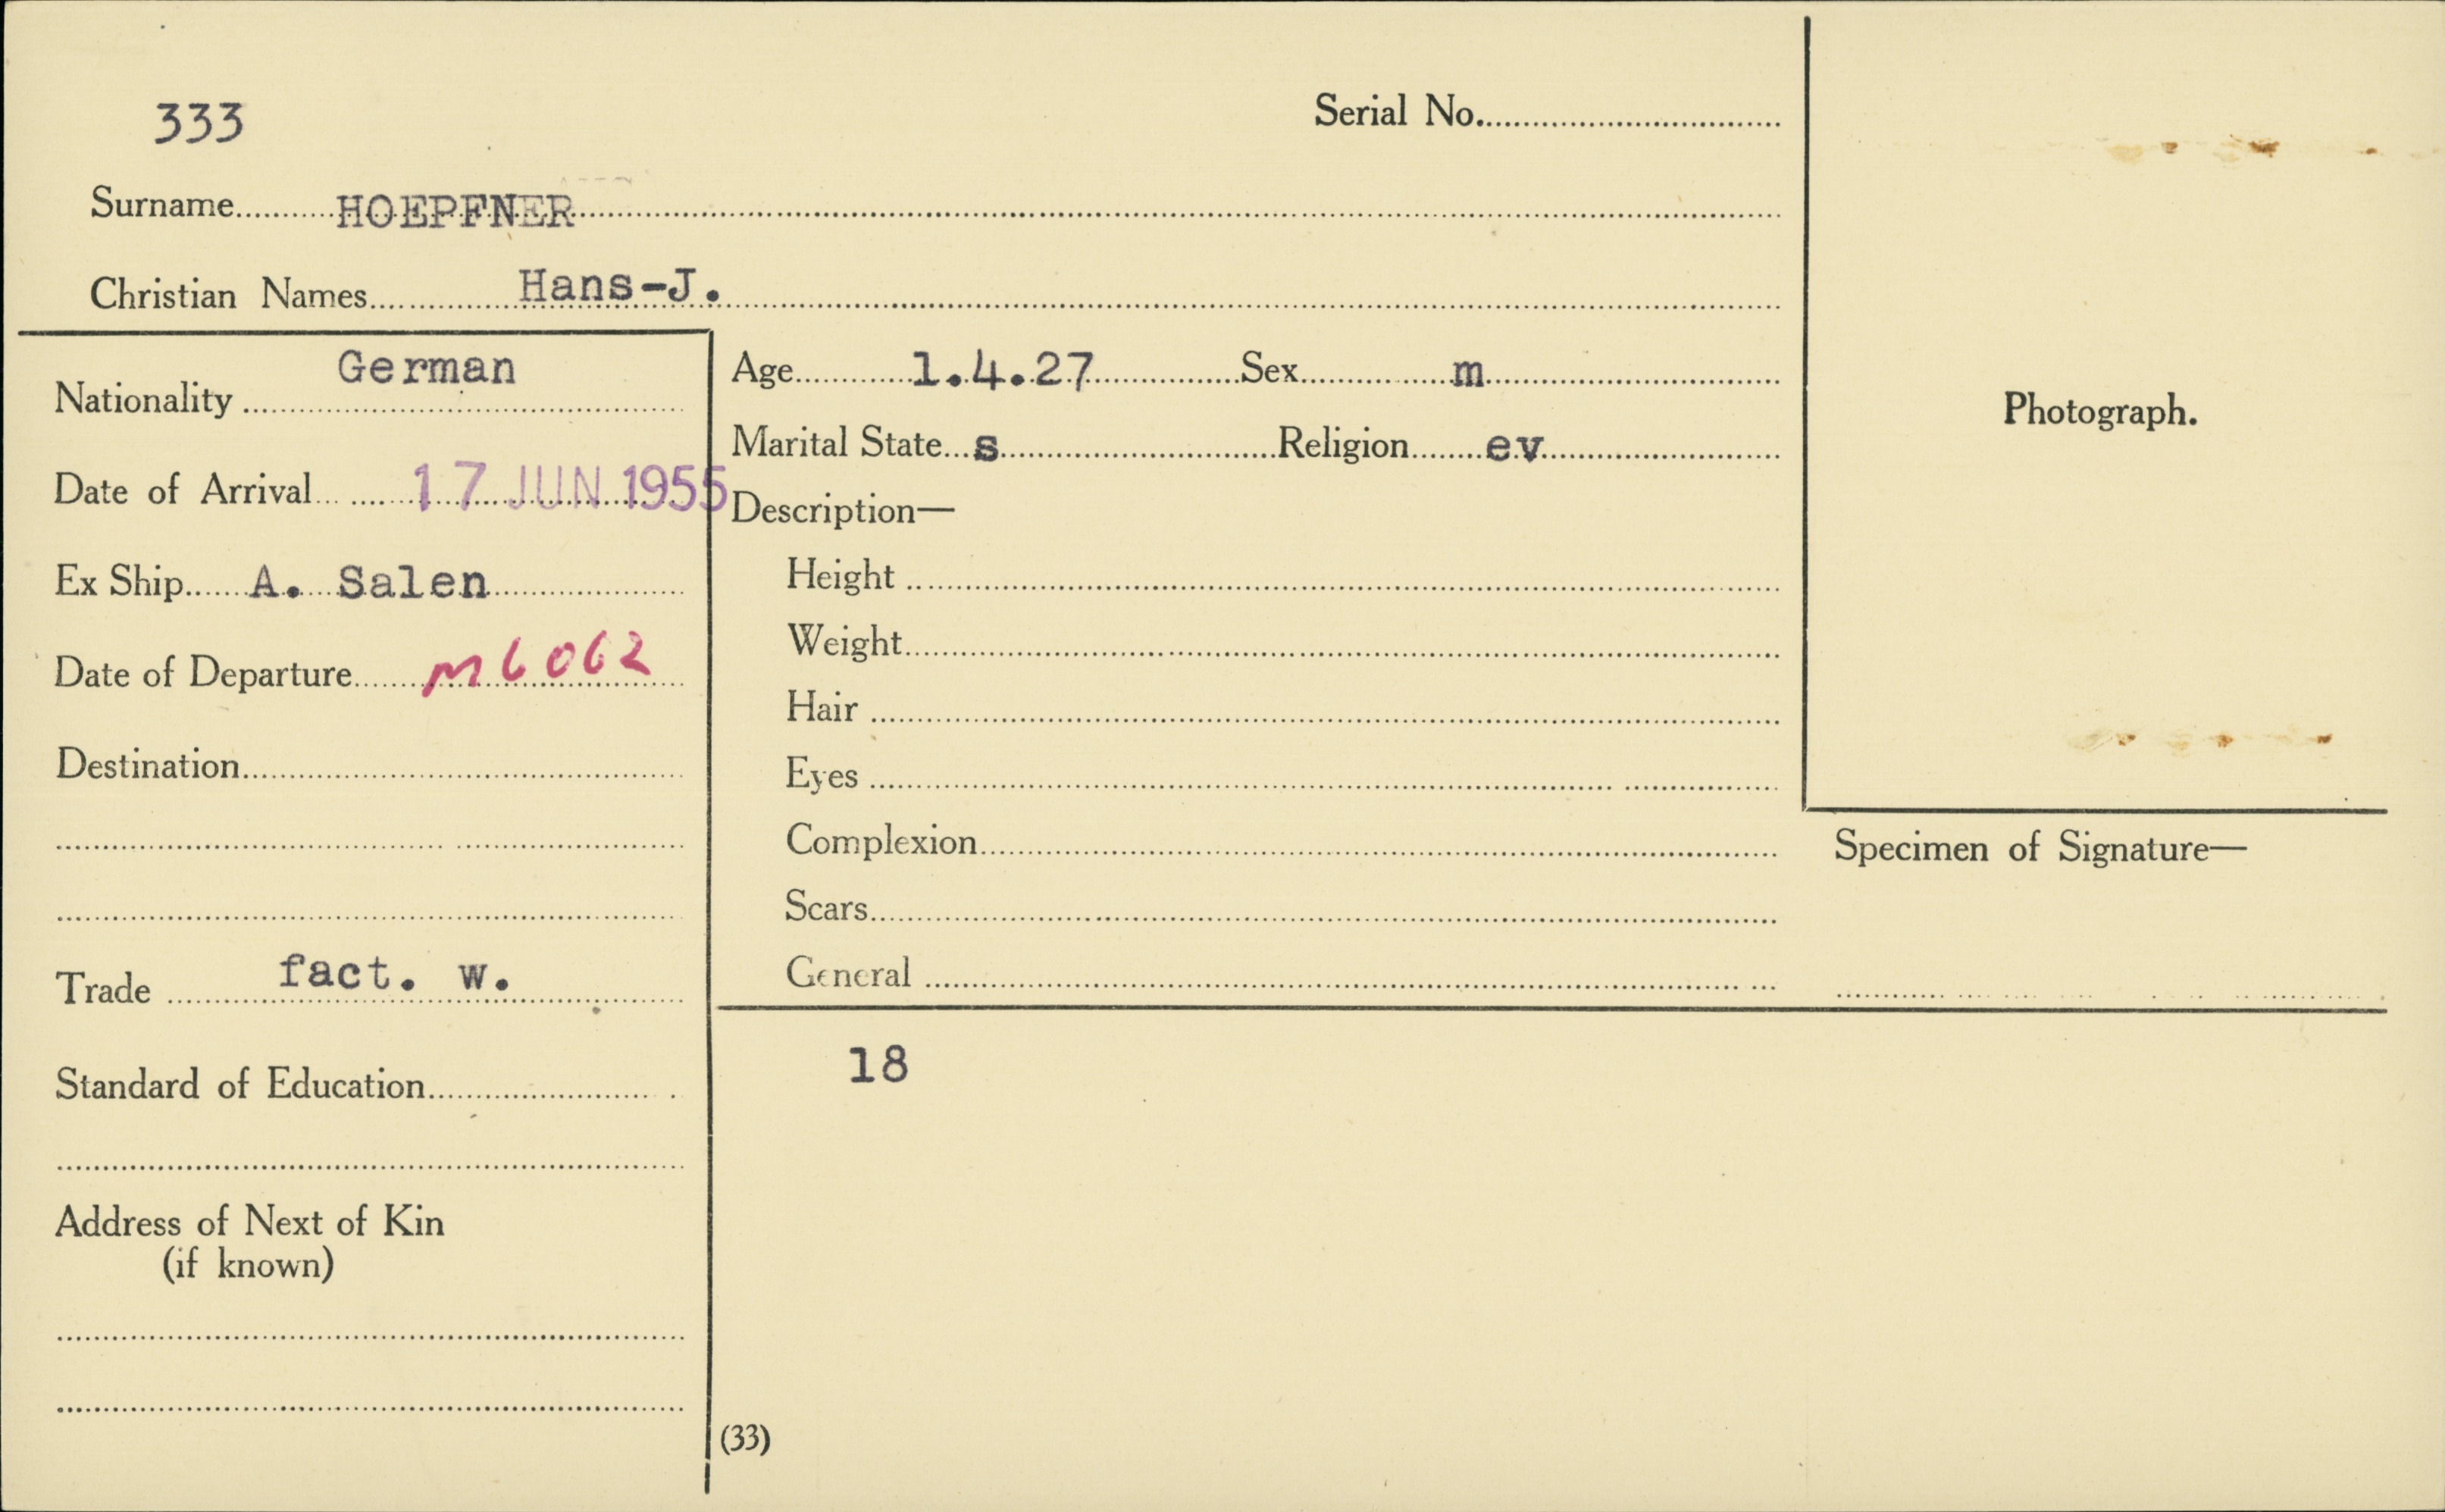 333
Serial No.
Surname HOEPFNER
Christian Names Hans-J.
Nationality German
Date of Arrival 17 JUN 1955
Ex Ship A. Salen
Date of Departure M6062
Destination
Trade fact. w.
Standard of Education
Address of Next of Kin
(if known)
Age 1.4.27 Sex m
Marital State s Religion ev
Description—
Height
Weight
Hair
Eyes
Complexion
Scars
General
18
(33)
Photograph.
Specimen of Signature—